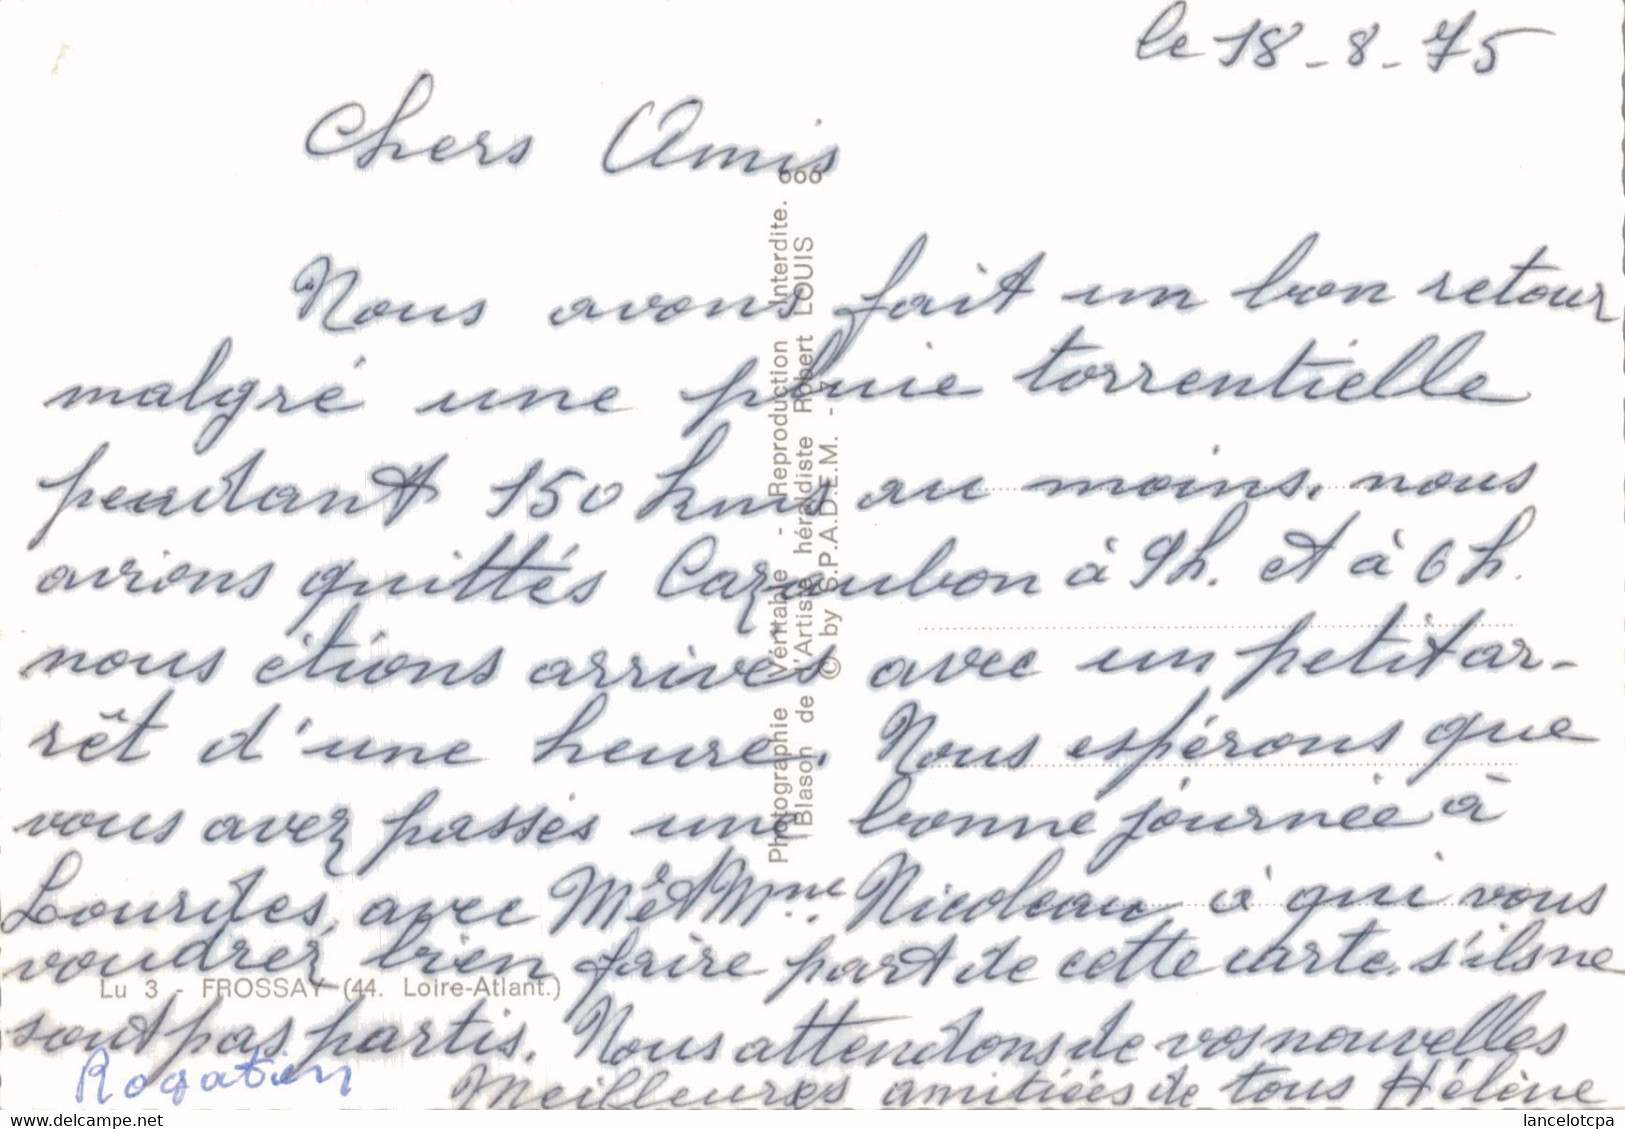 le 18-8-75
Chers Amis
Nous avons fait un bon retour
malgré une pluie torrentielle
pendant 150 kms au moins, nous
avions quittés Cazaubon à 9h. et à 6h.
nous étions arrivés avec un petit ar-
rêt d'une heure. Nous espérons que
vous avez passés une bonne journée à
Lourdes, avec Mr et Mme Nicoleau à qui vous
voudrez bien faire part de cette carte s'ils ne
sont pas partis. Nous attendons de vos nouvelles
Meilleures amitiées de tous Hélène
Rogatien
Lu 3 - FROSSAY (44. Loire-Atlant.)
Photographie Véritable - Reproduction Interdite. 666
Blason de l'Artiste héraldiste Robert LOUIS
© by S.P.A.D.E.M. - 7
www.delcampe.net
lancelotcpa